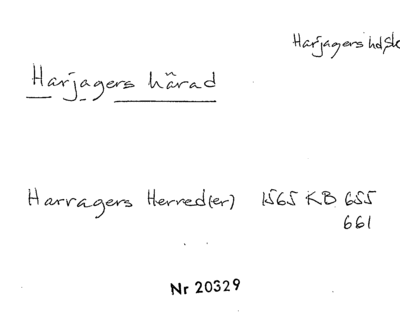 Harjagers hd, Sk
Harjagers härad
Harragers Herred(er) 1565 KB 655
661
Nr 20329